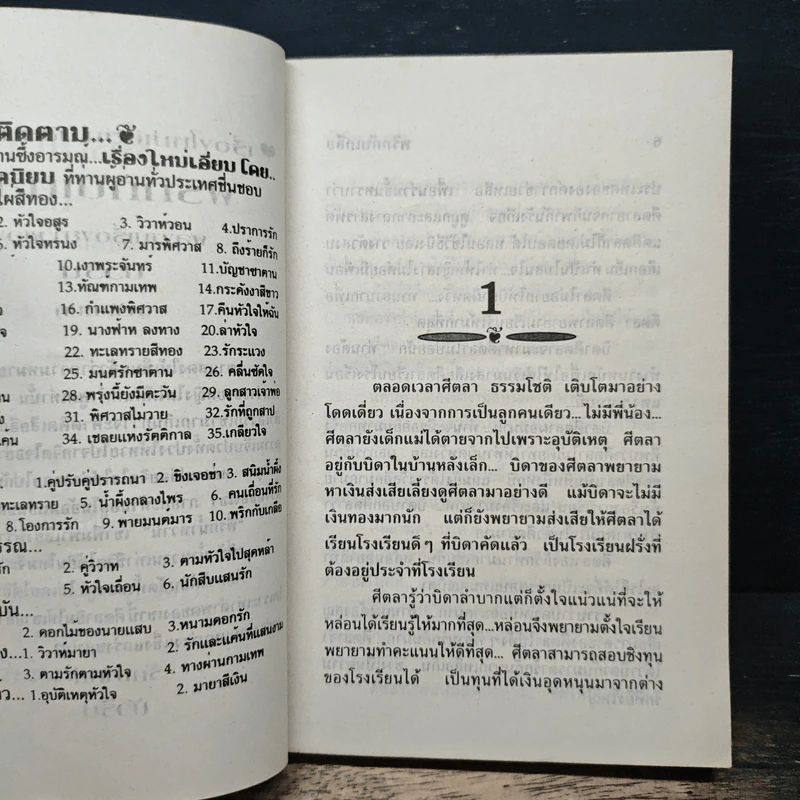 ติดตาม...
านซึ้งอารมณ์...เรื่องใหม่เอี่ยม โดย..
คนิยม ที่ท่านผู้อ่านทั่วประเทศชื่นชอบ
ไผ่สีทอง...
2. หัวใจอสูร 3. วิวาห์วอน 4.ปราการรัก
6. หัวใจทรนง 7. มารพิศวาส 8. ถึงร้ายก็รัก
10.เงาพระจันทร์ 11.บัญชาซาตาน
13.ทัณฑ์กามเทพ 14.กระดังงาสีขาว
16. กำแพงพิศวาส 17.คืนหัวใจให้ฉัน
19. นางฟ้าหลงทาง 20.ล่าหัวใจ
22. ทะเลทรายสีทอง 23.รักระแวง
25. มนต์รักซาตาน 26. คลื่นซัดใจ
28. พรุ่งนี้ยังมีตะวัน 29. ลูกสาวเจ้าพ่อ
31. พิศวาสไม่วาย 32.รักที่ถูกสาป
34. เชลยแห่งรัตติกาล 35.เกลียวใจ
1.คู่ปรับคู่ปรารถนา 2. ชิงเจอข่า 3. สนิมน้ำผึ้ง
ทะเลทราย 5. น้ำผึ้งกลางไพร 6. คนเถื่อนที่รัก
8.โองการรัก 9. พ่ายมนต์มาร 10. พริกกับเกลือ
รรณ...
รัก 2. คู่วิวาท 3. ตามหัวใจไปสุดหล้า
5. หัวใจเถื่อน 6. นักสืบแสนรัก
บัน...
2. ดอกไม้ของนายแสบ 3.หนามดอกรัก
ง...1. วิวาห์มายา 2. รักและแค้นที่แสนงาม
3. ตามรักตามหัวใจ 4. ทางผ่านกามเทพ
ว... 1.อุบัติเหตุหัวใจ 2. มายาสีเงิน
1
ตลอดเวลาศีตลา ธรรมโชติ เติบโตมาอย่าง
โดดเดี่ยว เนื่องจากการเป็นลูกคนเดียว...ไม่มีพี่น้อง...
ศีตลายังเด็กแม่ได้ตายจากไปเพราะอุบัติเหตุ ศีตลา
อยู่กับบิดาในบ้านหลังเล็ก... บิดาของศีตลาพยายาม
หาเงินส่งเสียเลี้ยงดูศีตลามาอย่างดี แม้บิดาจะไม่มี
เงินทองมากนัก แต่ก็ยังพยายามส่งเสียให้ศีตลาได้
เรียนโรงเรียนดีๆ ที่บิดาคัดแล้ว เป็นโรงเรียนฝรั่งที่
ต้องอยู่ประจำที่โรงเรียน
ศีตลารู้ว่าบิดาลำบากแต่ก็ตั้งใจแน่วแน่ที่จะให้
หล่อนได้เรียนรู้ให้มากที่สุด...หล่อนจึงพยายามตั้งใจเรียน
พยายามทำคะแนนให้ดีที่สุด... ศีตลาสามารถสอบชิงทุน
ของโรงเรียนได้ เป็นทุนที่ได้เงินอุดหนุนมาจากต่าง